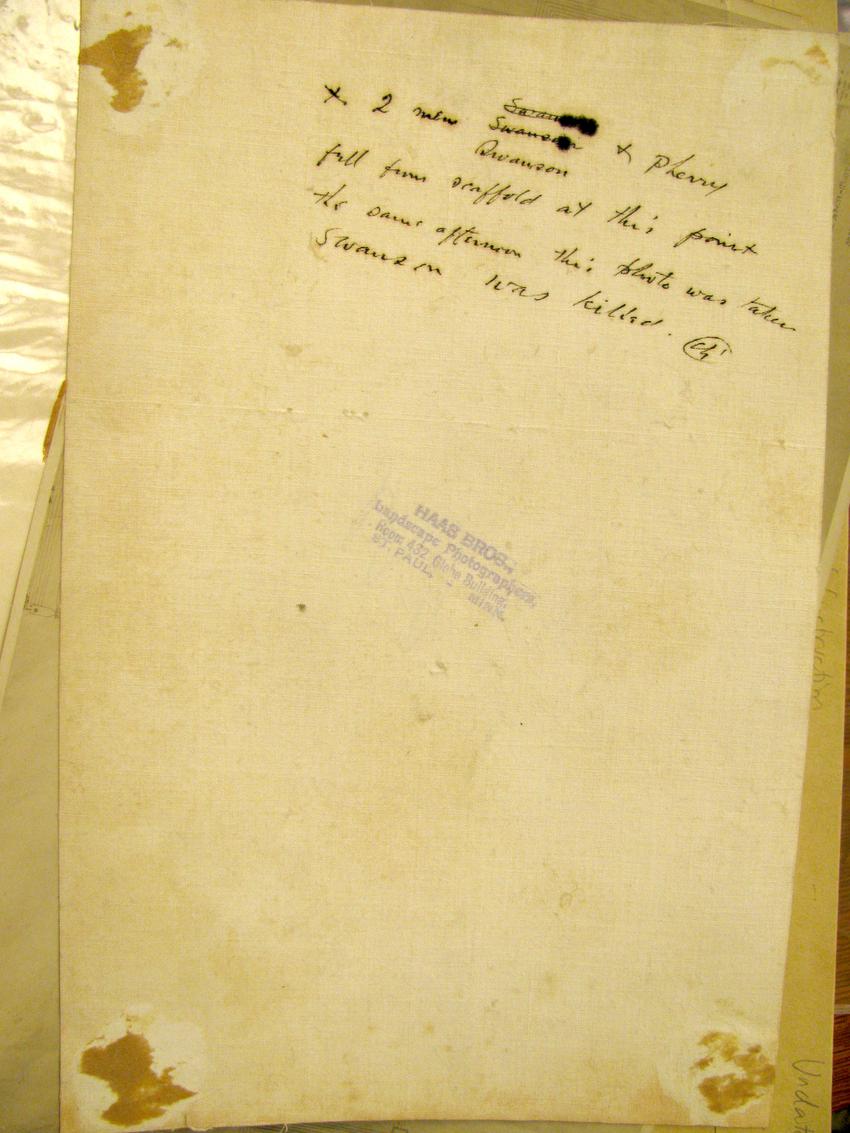 x 2 men Swanson & Pherry
Swanson
Swanson
fell from scaffold at this point
the same afternoon this photo was taken
Swanson was killed.
HAAS BROS.,
Landscape Photographers,
Room 432, Globe Building,
ST. PAUL, - MINN.
struction
Undat